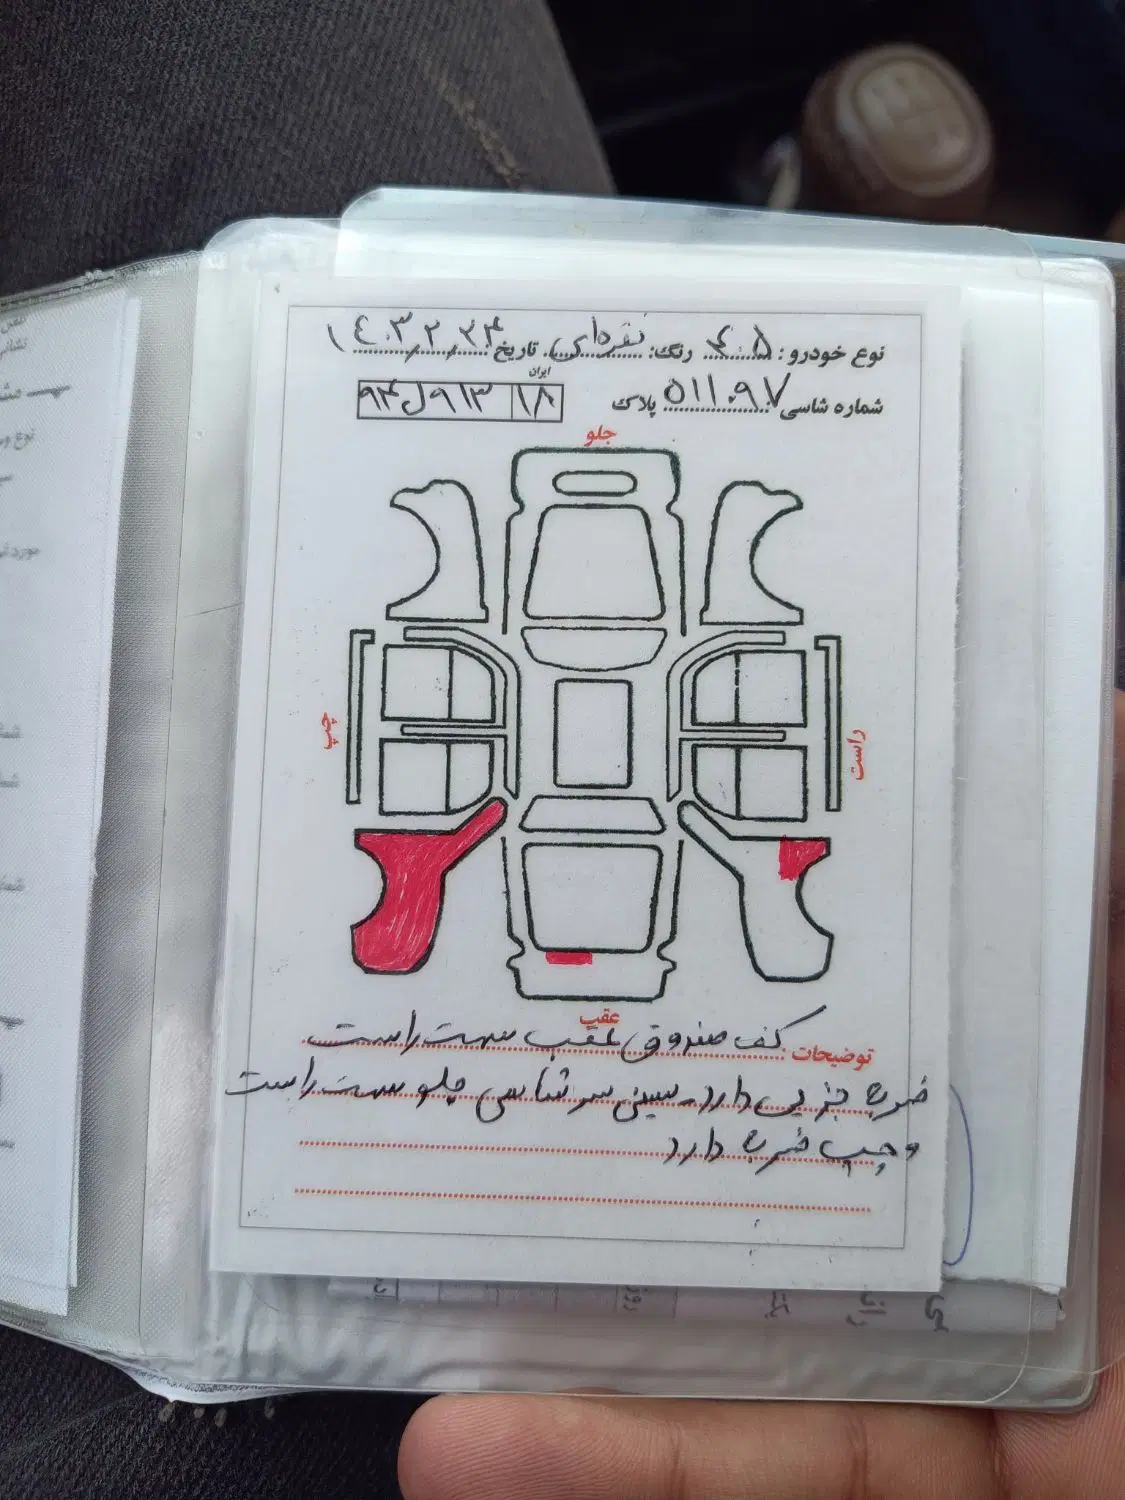 نوع خودرو: ۴۰۵ رنگ: نقره‌ای تاریخ ۱۴۰۳٫۲٫۲۴
شماره شاسی ۵۱۱۰۹۷ پلاک ۹۴ل۹۱۳ ایران ۱۸
جلو
چپ
راست
عقب
توضیحات کف صندوق عقب سمت راست
ضربه جزیی دارد-سینی سر شاسی جلو سمت راست
و چپ ضربه دارد